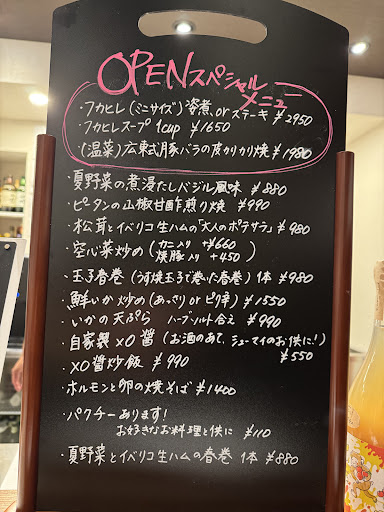 OPENスペシャル
メニュー
・フカヒレ(ミニサイズ)姿煮orステーキ ¥2950
・フカヒレスープ 1cup ¥1650
・(温菜)広東式豚バラの皮かりかり焼 ¥1980
・夏野菜の煮浸たしバジル風味 ¥880
・ピータンの山椒甘酢煎り焼 ¥990
・松茸とイベリコ生ハムの「大人のポテサラ」 ¥980
・空心菜炒め(カニ入り +¥660
焼豚入り +450)
・玉子春巻(うす焼玉子で巻いた春巻) 1本 ¥980
・鮮いか炒め(あっさり or ピリ辛) ¥1550
・いかの天ぷら ハーブソルト合え ¥990
・自家製XO醤(お酒のあて、シューマイのお供に!)
¥550
・XO醤炒飯 ¥990
・ホルモンと卵の焼そば ¥1400
・パクチーあります!
お好きなお料理と供に ¥110
・夏野菜とイベリコ生ハムの春巻 1本 ¥880